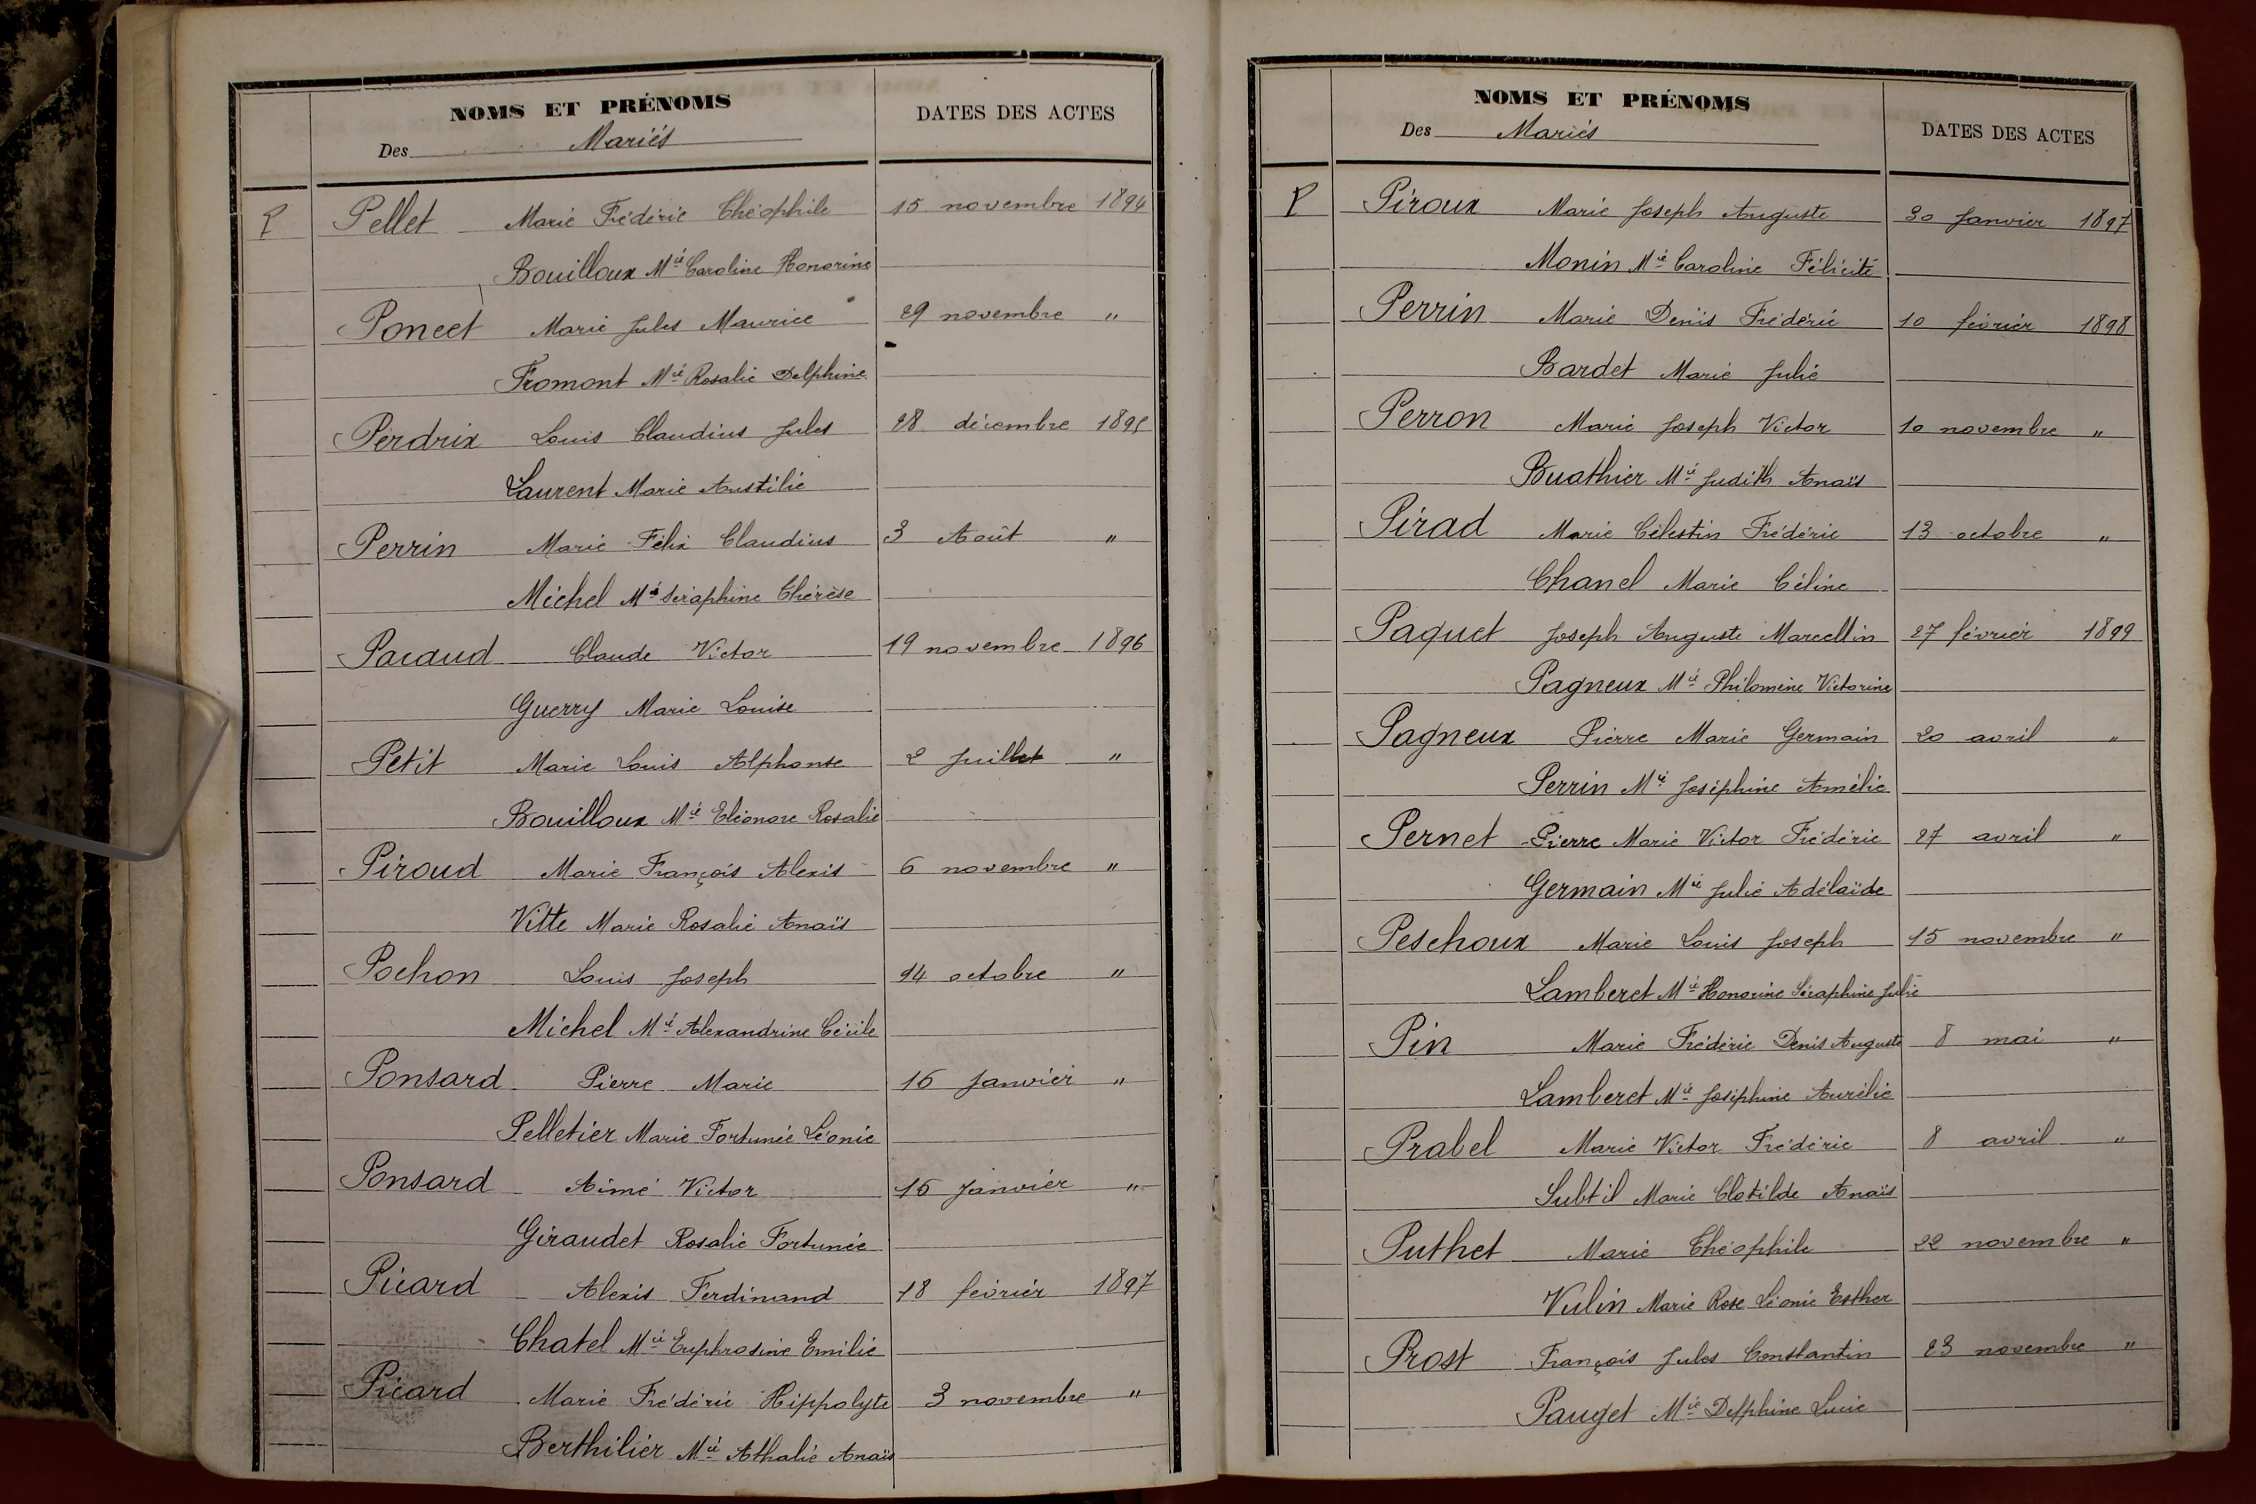 NOMS ET PRÉNOMS
Des Mariés
DATES DES ACTES
P Pellet Marie Frédéric Théophile 15 novembre 1894
Bouilloux Mie Caroline Honorine
Poncet Marie Jules Maurice 29 novembre "
Fromont Mie Rosalie Delphine
Perdrix Louis Claudius Jules 28 décembre 1895
Laurent Marie Anstilie
Perrin Marie Félix Claudius 3 Août "
Michel Mie Séraphine Thérèse
Pacaud Claude Victor 19 novembre 1896
Guerry Marie Louise
Petit Marie Louis Alphonse 2 Juillet "
Bouilloux Mie Eléonore Rosalie
Piroud Marie François Alexis 6 novembre "
Vitte Marie Rosalie Anaïs
Pochon Louis Joseph 14 octobre "
Michel Mie Alexandrine Cécile
Ponsard Pierre Marie 16 Janvier "
Pelletier Marie Fortunée Léonie
Ponsard Aimé Victor 16 Janvier "
Giraudet Rosalie Fortunée
Picard Alexis Ferdinand 18 février 1897
Chatel Mie Euphrosine Emilie
Picard Marie Frédéric Hippolyte 3 novembre "
Berthilier Mie Athalie Anaïs
NOMS ET PRÉNOMS
Des Mariés
DATES DES ACTES
P Piroux Marie Joseph Auguste 30 Janvier 1897
Monin Mie Caroline Félicité
Perrin Marie Denis Frédéric 10 février 1898
Bardet Marie Julie
Perron Marie Joseph Victor 10 novembre "
Buathier Mie Judith Anaïs
Pirad Marie Célestin Frédéric 13 octobre "
Chanel Marie Céline
Paquet Joseph Auguste Marcellin 27 février 1899
Pagneux Mie Philomène Victorine
Pagneux Pierre Marie Germain 20 avril "
Perrin Mie Joséphine Amélie
Pernet Pierre Marie Victor Frédéric 27 avril "
Germain Mie Julie Adélaïde
Peschoux Marie Louis Joseph 15 novembre "
Lamberet Mie Honorine Séraphine Julie
Pin Marie Frédéric Denis Auguste 8 mai "
Lamberet Mie Joséphine Aurélie
Prabel Marie Victor Frédéric 8 avril "
Subtil Marie Clotilde Anaïs
Puthet Marie Théophile 22 novembre "
Vulin Marie Rose Léonie Esther
Prost François Jules Constantin 23 novembre "
Pauget Mie Delphine Lucie